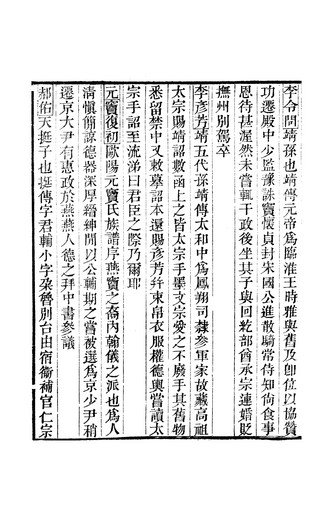 李令問靖孫也靖傳元帝爲臨淮王時雅與舊及卽位以協贊
功遷殿中少監豫誅竇懷貞封宋國公進散騎常侍知尚食事
恩待甚渥然未嘗輒干政後坐其子與回紇部酋承宗連婚貶
撫州別駕卒
李彥芳靖五代孫靖傳太和中爲鳳翔司錄參軍家故藏高祖
太宗賜靖詔數函上之皆太宗手墨文宗愛之不廢手其舊物
悉留禁中又敕摹詔本還賜彥芳幷束帛衣服權德輿嘗讀太
宗手詔至流涕曰君臣之際乃爾耶
元竇復初歐陽元竇氏族譜序燕竇之裔内翰儀之派也爲人
清愼簡諒德器深厚縉紳間以公輔期之嘗被選爲京少尹稍
遷京大尹有惠政於燕燕人德之拜中書參議
郝佑天挺子也挺傳字君輔小字朶魯別台由宿衞補官仁宗